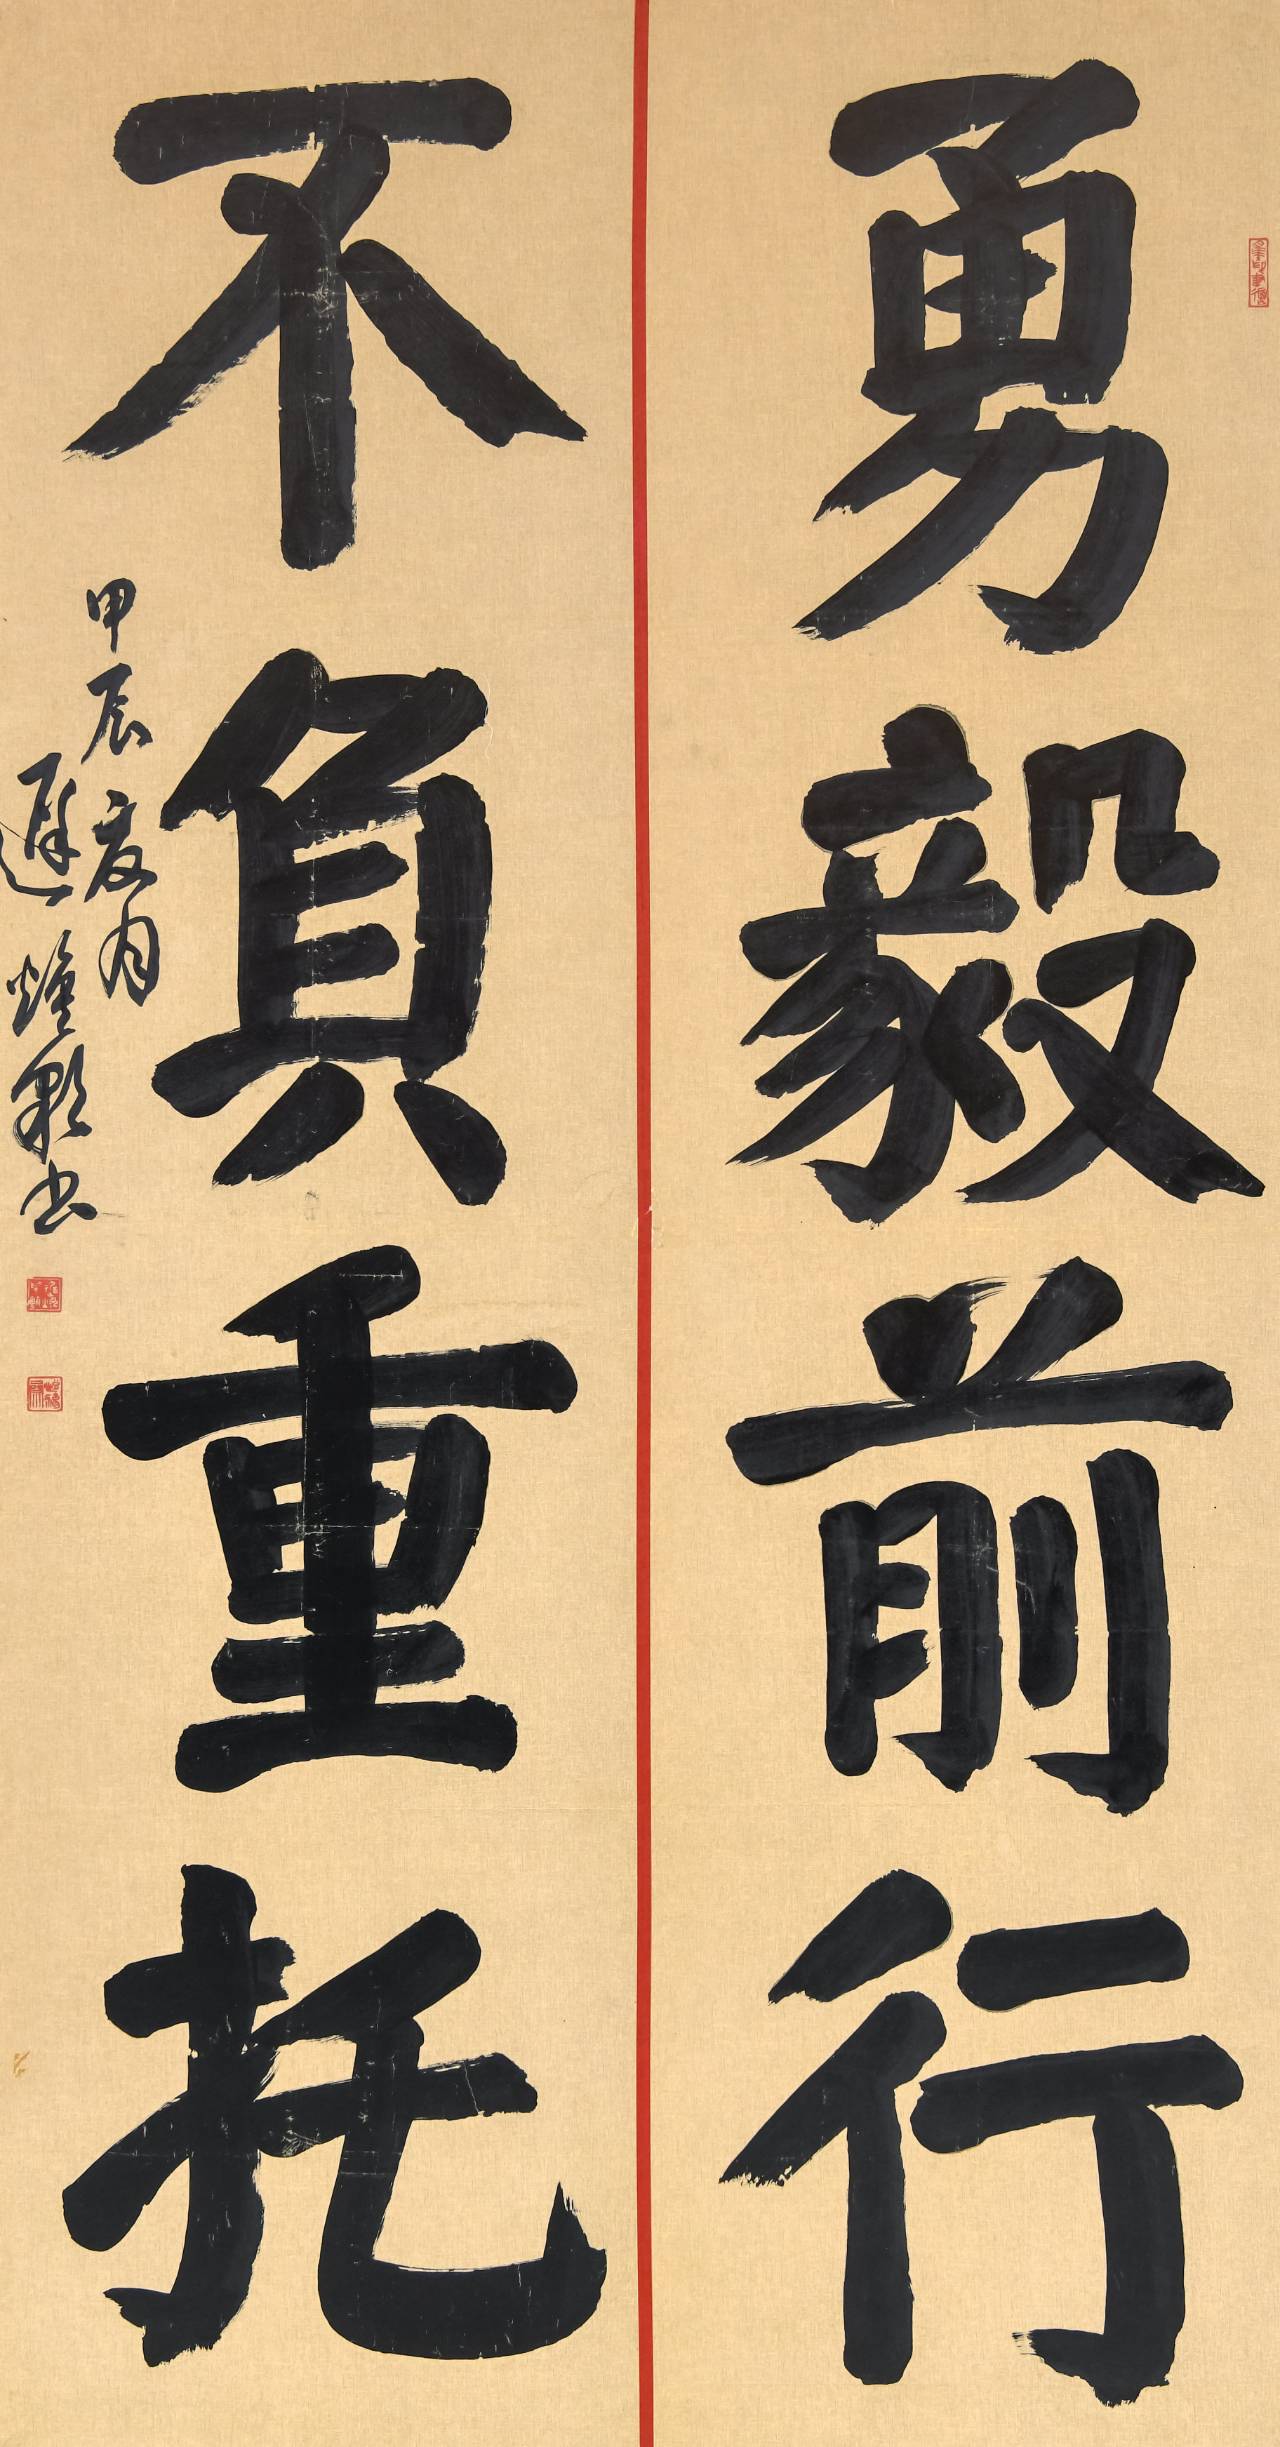 勇毅前行
不負重托
甲辰夏月
遲煒彩書